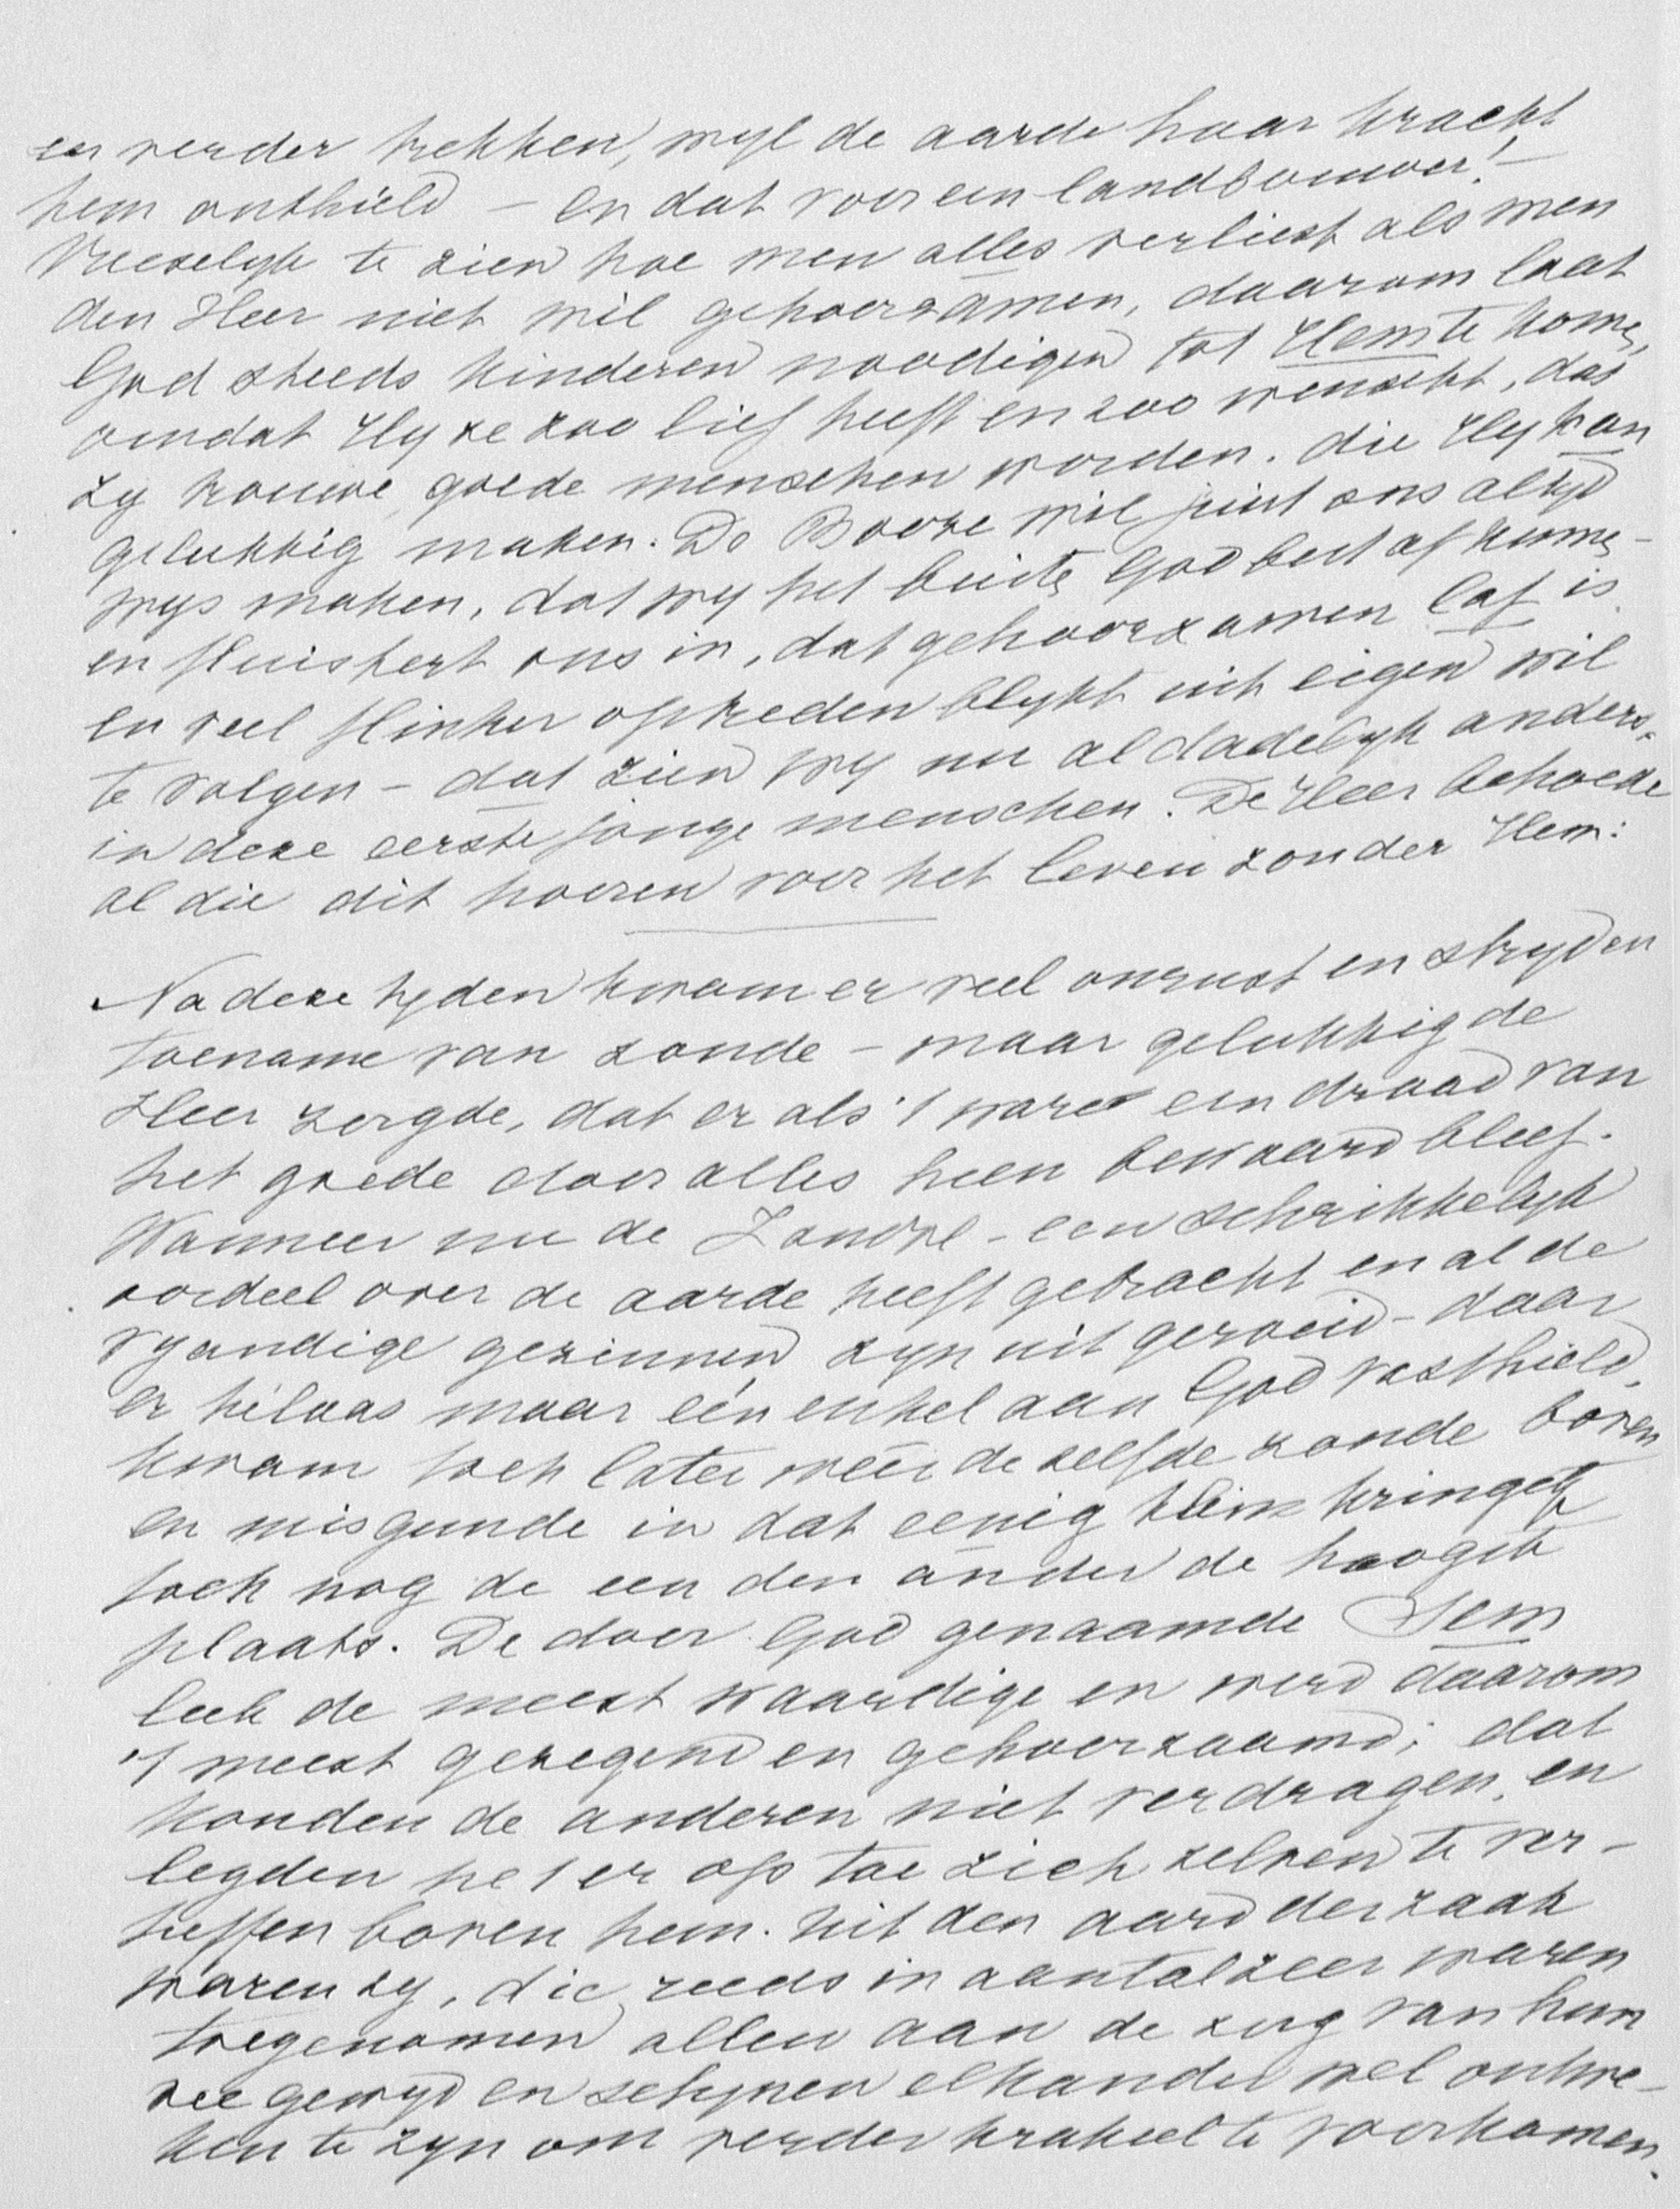 en verder trekken, wyl de aarde haar kracht
hem onthield – en dat voor een landbouwer! –
Vreeselyk te zien hoe men alles verliest als men
den Heer niet wil gehoorzamen, daarom laat
God steeds kinderen noodigen tot Hem te kome,
omdat Hy ze zoo lief heeft en zoo wenscht, dat
zy trouwe, goede menschen worden. die Hy kan
gelukkig maken. De Booze wil juist ons altyd
wys maken, dat wy het buite God best af kunne –
en fluistert ons in, dat gehoorzamen laf is
en veel flinker optreden blykt uit eigen wil
te volgen – dat zien wy nu al dadelyk anders,
in deze eerste jonge menschen. De Heer behoede
al die dit hooren voor het leven zonder Hem:
Na deze tyden kwam er veel onrust en stryd en
toename van zonde – maar gelukkig de
Heer zorgde, dat er als 't ware een draad van
het goede door alles heen bewaard bleef.
Wanneer nu de Zondvl – een schrikkelyk
oordeel over de aarde heeft gebracht en al de
vyandige gezinnen zyn uitgeroeid – daar
er helaas maar één enkel aan God vasthield,
kwam toch later weer dezelfde zonde boven
en misgunde in dat eenig klein kringetje
toch nog de een den ander de hoogste
plaats. De door God genaamde Sem
leek de meest waardige en werd daarom
't meest gezegend en gehoorzaamd; dat
konden de anderen niet verdragen, en
legden het er op toe zich zelven te ver –
heffen boven hem. Uit den aard der zaak
waren zy, die reeds in aantal zeer waren
toegenomen allen aan de zorg van hun
vee gewyd en schynen elkander wel ontwe –
ken te zyn om verder krakeel te voorkomen.